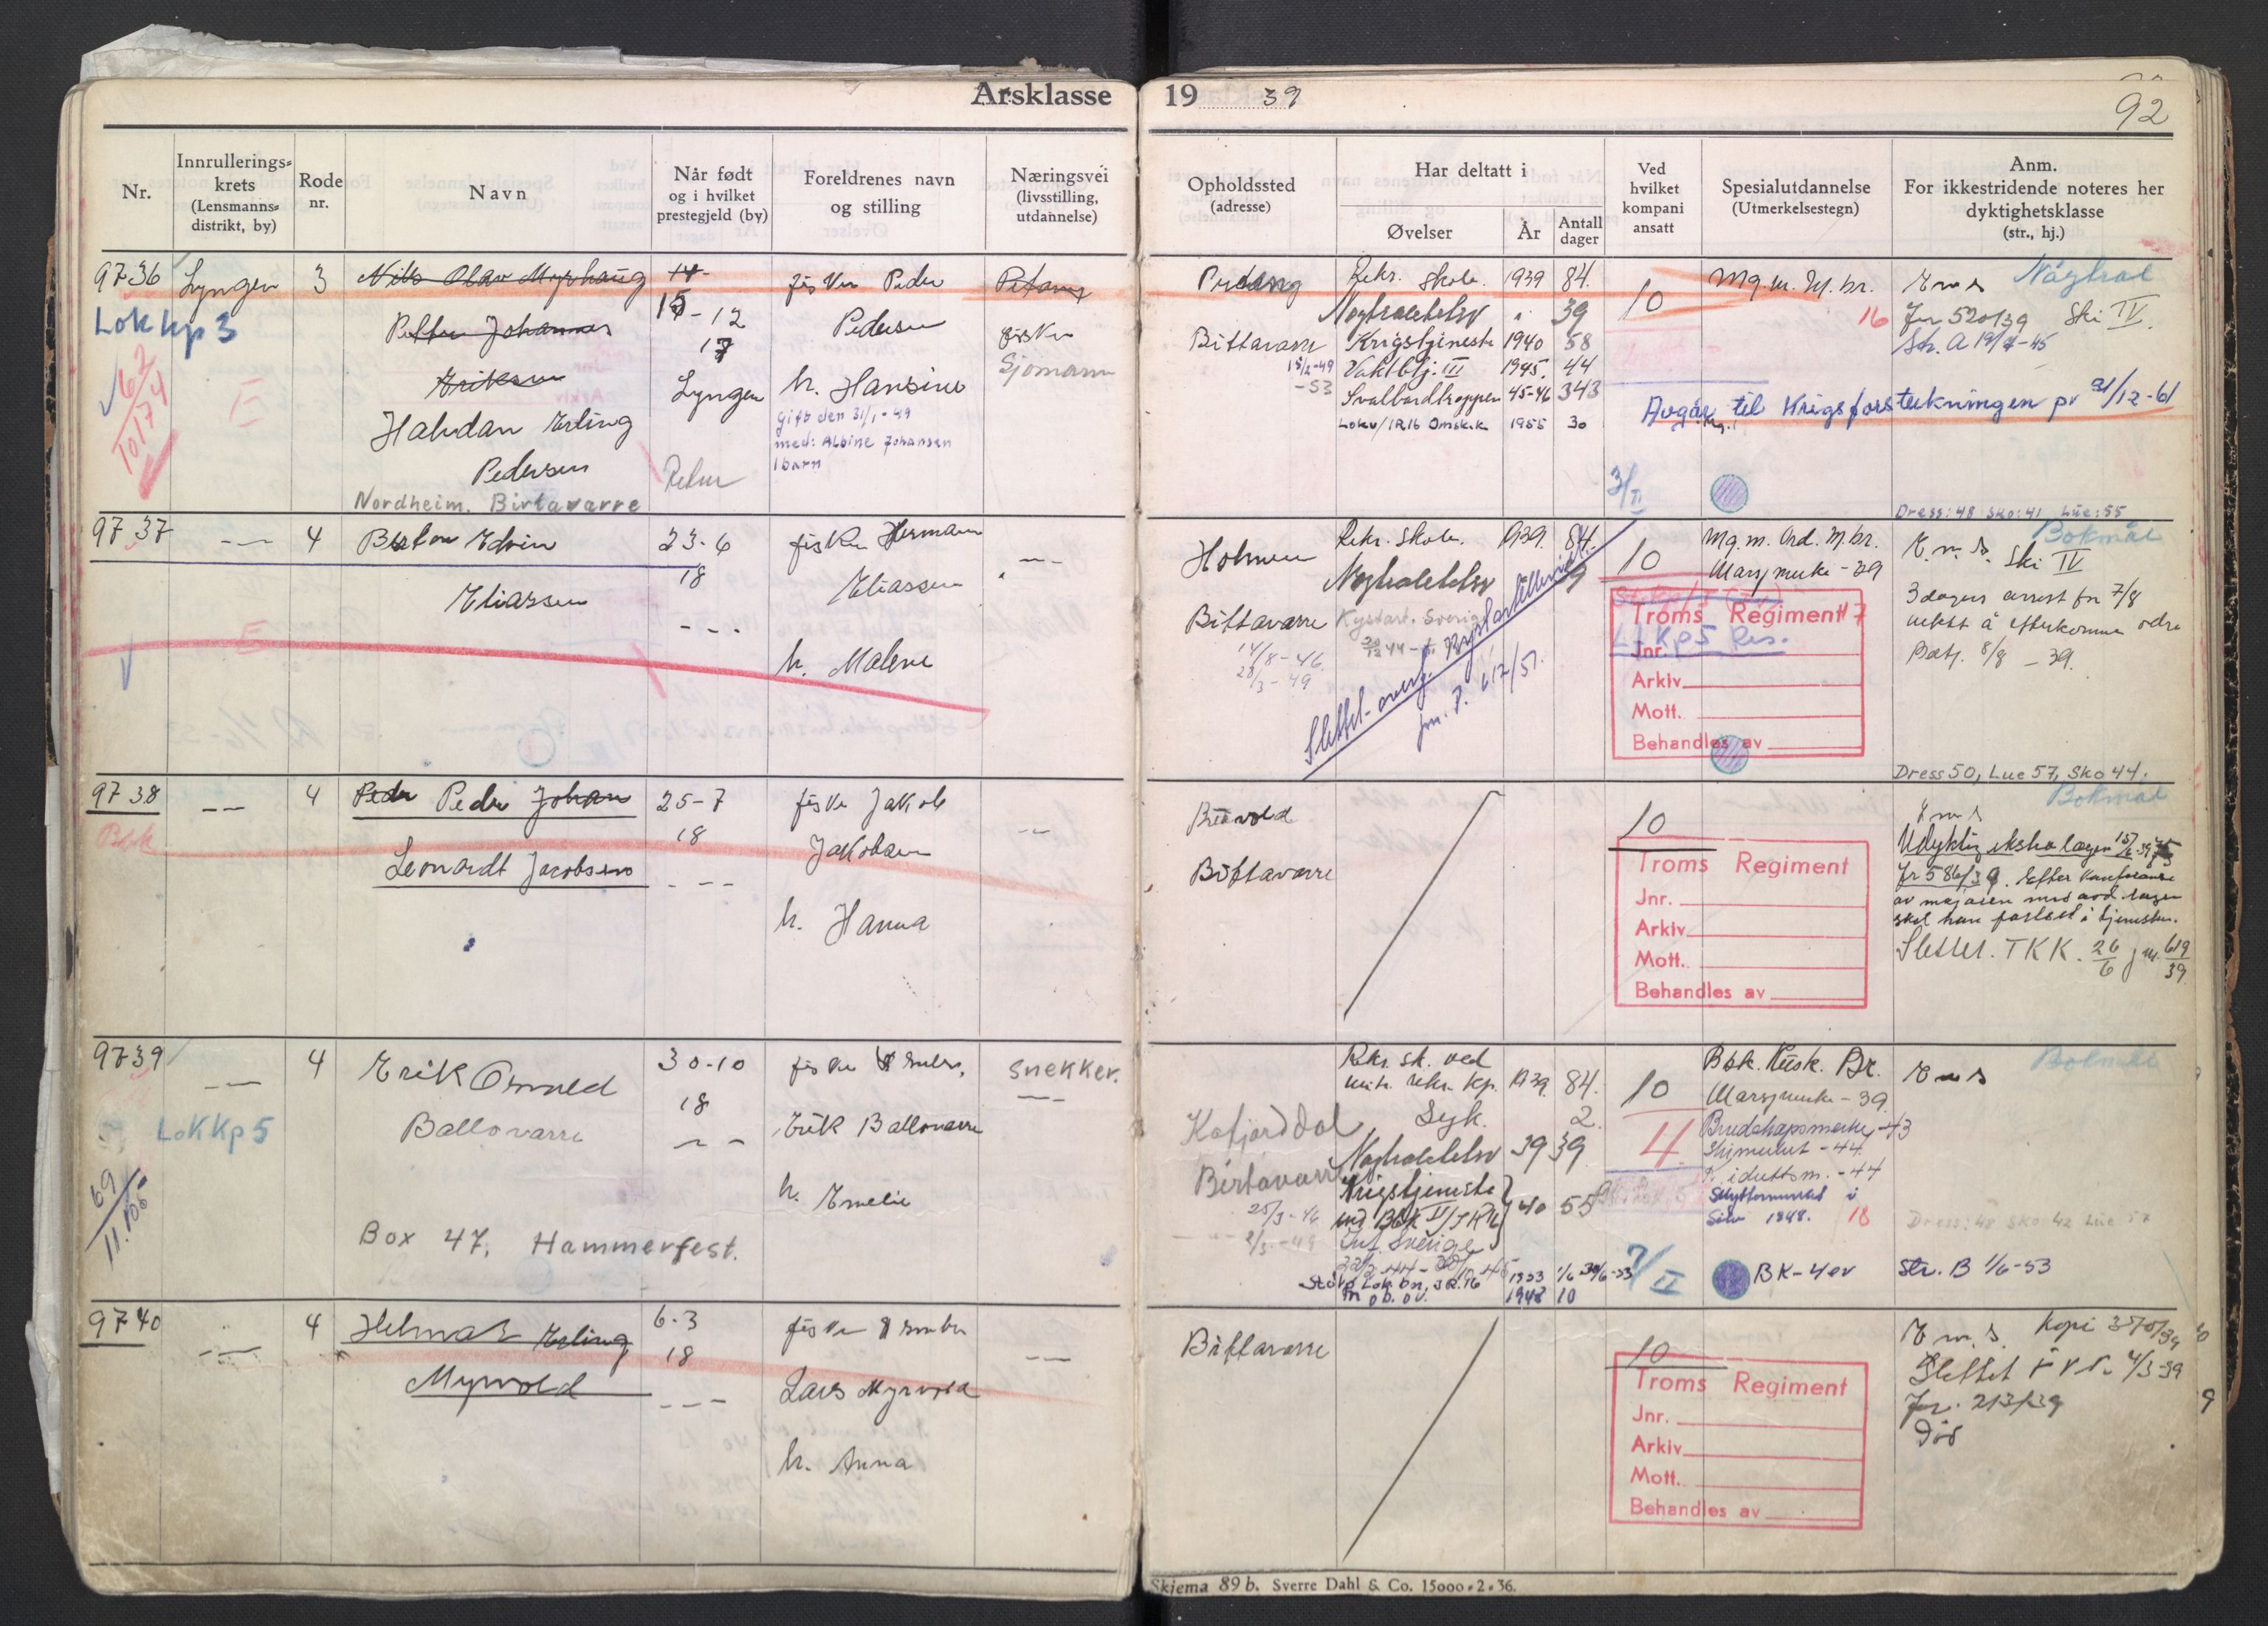 Årsklasse 19 39
92
Nr.
Innrullerings-
krets
(Lensmanns-
distrikt, by)
Rode
nr.
Navn
Når født
og i hvilket
prestegjeld (by)
Foreldrenes navn
og stilling
Næringsvei
(livsstilling,
utdannelse)
Opholdssted
(adresse)
Har deltatt i
Øvelser
År
Antall
dager
Ved
hvilket
kompani
ansatt
Spesialutdannelse
(Utmerkelsestegn)
Anm.
For ikkestridende noteres her
dyktighetsklasse
(str., hj.)
9736
Lyngen
3
Lok kp 3
62
10174
E
Nils Olav Myrhaug
Petter Johannes
Eriksen
Halvdan Erling
Pedersen
Nordheim. Birtavarre
15-12
17
Lyngen
fisker Peder
Pedersen
h. Hansine
Gift den 31/1-49
med: Albine Johansen
1 barn
fisker
Sjømann
Birtavarre
15/2-49
-53
Rekr. skole. 1939 84.
Nøytralitetsv " 39
Krigstjeneste 1940 58
Vaktblj. III 1945. 44
Svalbardtroppen 45-46 343
Lokv/IR16 Omsk.k 1955 30
10
3/II
Mg.m. M.br.
16
E m s
Jnr 520/39 Ski IV.
Str. A 19/7-45
Avgår til Krigsforsterkningen pr 31/12-61
Dress: 48 Sko: 41 Lue: 55
9737
4
Edvin
Eliassen
23-6
18
fisker Herman
Eliassen
h. Malene
Holmen
Birtavarre
14/8-46
28/3-49
Rekr. skole. 1939. 84.
Nøytralitetsv
Kystart. Sverige
Slettet- overf. Kystartilleriet
jnr. P. 612/51.
10
Mg.m. Ord. M.br.
Marsjmerke - 39
17
L.Kp 5 Res.
Troms Regiment
Jnr.
Arkiv
Mott.
Behandles av
Bokmål
E. m. s. Ski IV
3 dagers arrest for 7/8
nektet å efterkomme ordre
Batj. 8/8 - 39.
Dress 50, Lue 57, Sko 44.
9738
Bok
4
Peder Peder Johan
Leonardt Jacobsen
25-7
18
fisker Jakob
Jakobsen
h. Hanna
Birtavarre
10
Troms Regiment
Jnr.
Arkiv
Mott.
Behandles av
Bokmål
E m s
Udyktig ekstra lægen
Jr 586/39. Efter konferanse
av majoren med avd. legen
skal han fortsett i tjenesten.
Slettet. TKK. 26/6 jnr. 619/39
9739
Lok Kp 5
69
11.106
4
Erik Osvald
Ballovarre
Box 47, Hammerfest.
30-10
18
Erik Ballovarre
h. Emelie
snekker.
Kåfjorddal
Birtavarre
25/3-46
2/3-49
Rekr. sk. ved
mitr. rekr. kp. 1939. 84.
Syk. 2.
Nøytralitetsv 39 39
Krigstjeneste
ved BtK II/IR16 40 55
Inf. Sverige
Lok. bn, IR.16 1953 1/6-30/6-53
Rp ob. øv. 1948 10
10
4.
7/II
Bok. Rusk. Br.
Marsjmerke - 39
Skimerket - 44
idrettsm. - 44
Skyttermerket i
Sølv 1948. 18
BK-4ev
Bokmål
E m s
Dress: 48 Sko: 42 Lue 57
Str. B 1/6-53
9740
4
Helmar Erling
Myrvold
6-3
18
Lars Myrvold
h. Anna
Birtavarre
10
Troms Regiment
Jnr.
Arkiv
Mott.
Behandles av
E. m. s. Kopi
Slettet 4/3-39
Jnr. 213/39
Død
Skjema 89 b. Sverre Dahl & Co. 15000-2-36.